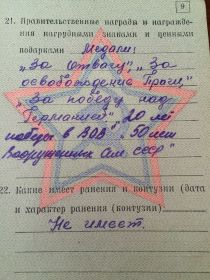 9
21. Правительственные награды и награжде-
ния нагрудными знаками и ценными
подарками Медали:
„За отвагу“, „За
освобождение Праги“,
„За победу над
Германией“, „20 лет
победы в ВОВ“, „50 лет
Вооруженных Сил СССР“
22. Какие имеет ранения и контузии (дата
и характер ранения (контузии)
Не имеет.